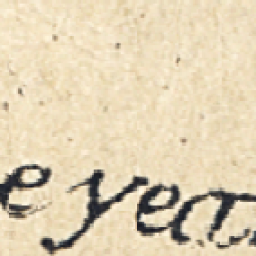 e yea